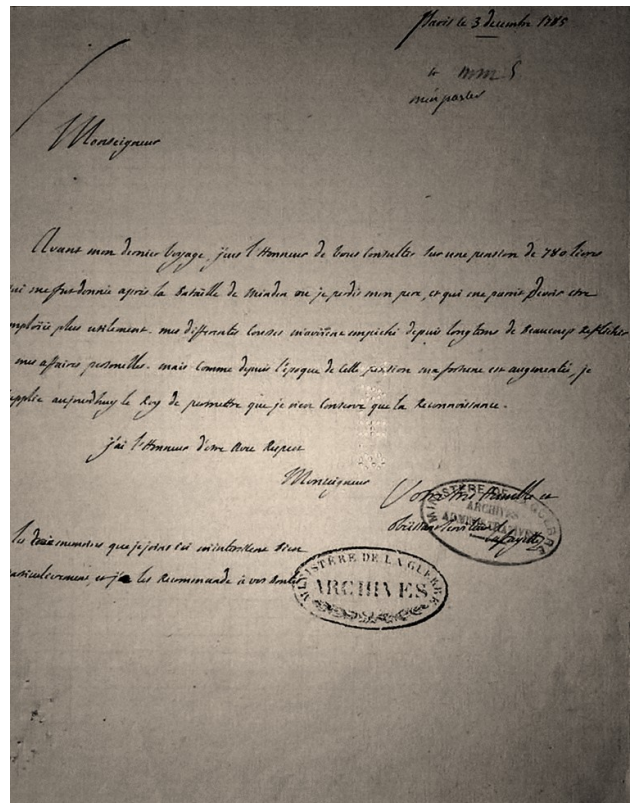 Paris le 3 decembre 1785
Monseigneur
Avant mon dernier voyage, j'eus l'Honneur de vous Consulter sur une pension de 780 livres
qui me fut donnée apres la Bataille de Minden ou je perdis mon pere, et qui me parut devoir etre
mploiée plus utilement. mes differentes Courses m'avoient empeché depuis longtems de Beaucoup Reflechir
mes affaires personelles. mais Comme depuis l'époque de Cette pension ma fortune est augmentée, je
supplie aujourdhuy le Roy de permettre que je n'en Conserve que la Reconnoissance.
j'ai l'Honneur d'etre Avec Respect
Monseigneur
Votre tres humble et
obeissant serviteur
Lafayette
les deux memoires que je joins ici m'interessent Bien
particulierement, et je les Recommande à vos Bontés
MINISTÈRE DE LA GUERRE
ARCHIVES
ADMINISTRATIVES
MINISTÈRE DE LA GUERRE
ARCHIVES